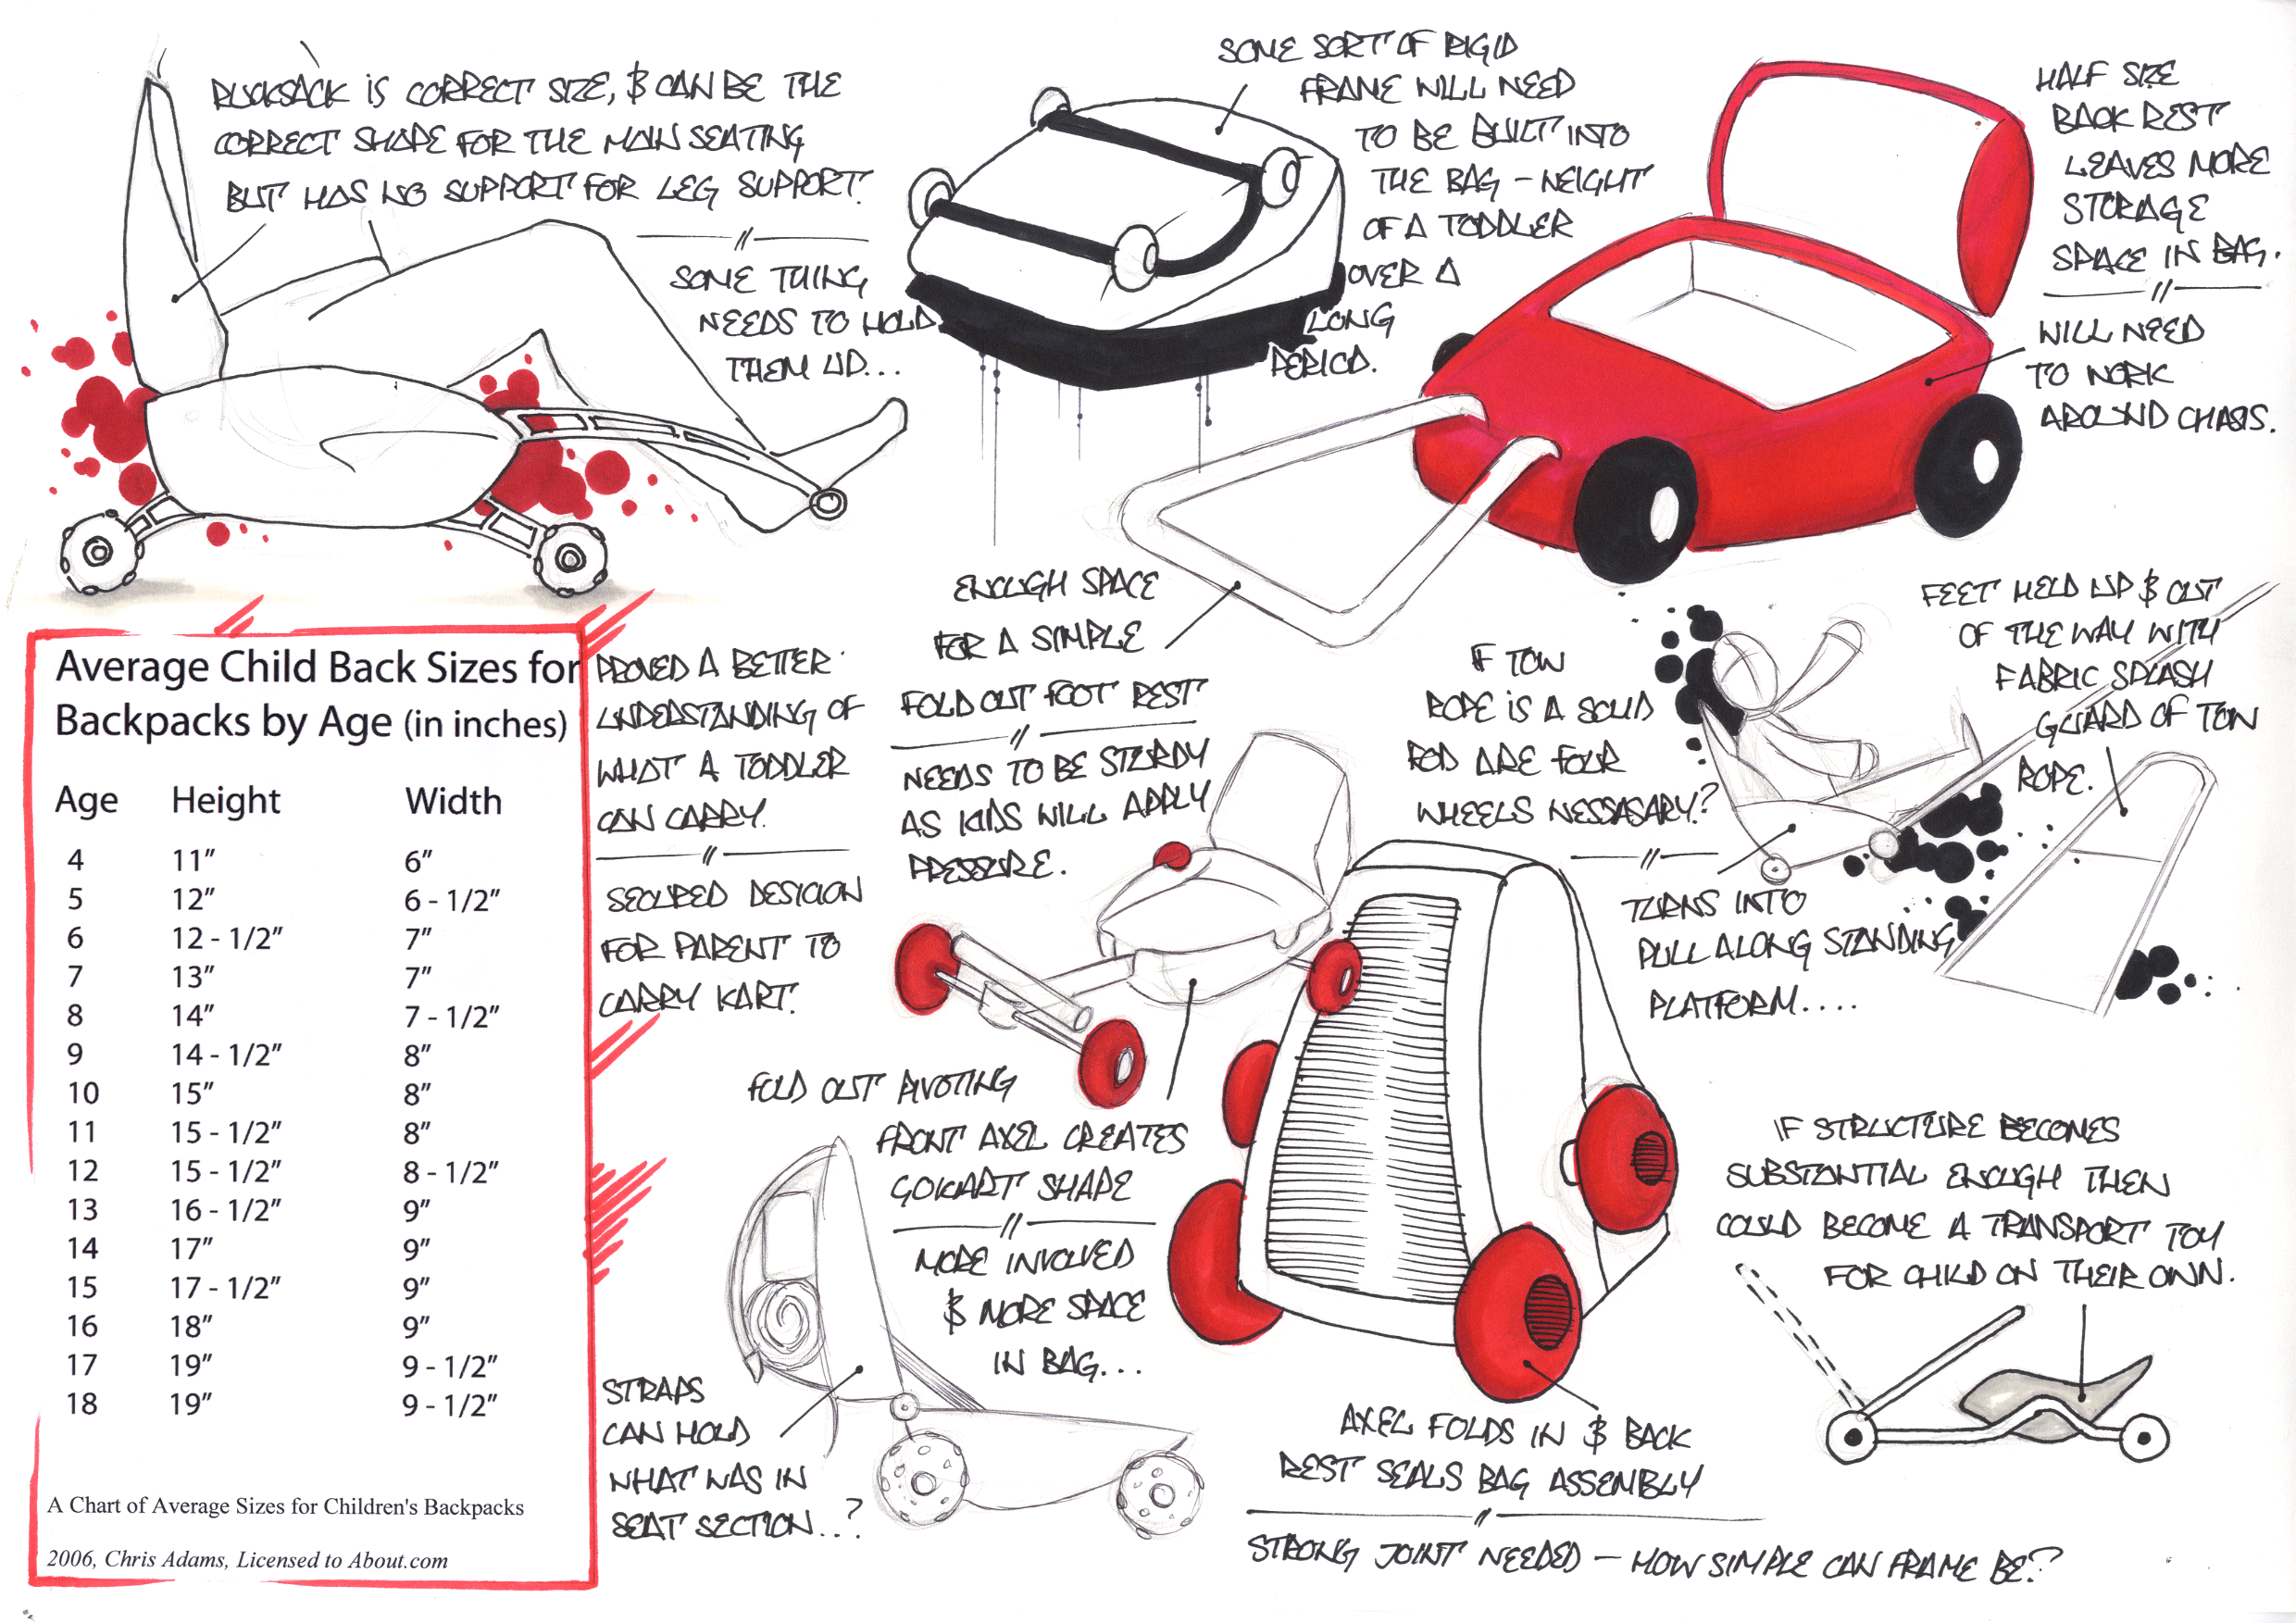 RUCKSACK IS CORRECT SIZE, & CAN BE THE
CORRECT SHAPE FOR THE MAIN SEATING
BUT HAS NO SUPPORT FOR LEG SUPPORT.
SOME THING
NEEDS TO HOLD
THEM UP...
SOME SORT OF RIGID
FRAME WILL NEED
TO BE BUILT INTO
THE BAG - WEIGHT
OF A TODDLER
OVER A
LONG
PERIOD.
HALF SIZE
BACK REST
LEAVES MORE
STORAGE
SPACE IN BAG.
WILL NEED
TO WORK
AROUND CHASIS.
Average Child Back Sizes for
Backpacks by Age (in inches)
Age Height Width
4 11" 6"
5 12" 6 - 1/2"
6 12 - 1/2" 7"
7 13" 7"
8 14" 7 - 1/2"
9 14 - 1/2" 8"
10 15" 8"
11 15 - 1/2" 8"
12 15 - 1/2" 8 - 1/2"
13 16 - 1/2" 9"
14 17" 9"
15 17 - 1/2" 9"
16 18" 9"
17 19" 9 - 1/2"
18 19" 9 - 1/2"
A Chart of Average Sizes for Children's Backpacks
2006, Chris Adams, Licensed to About.com
PROVED A BETTER
UNDERSTANDING OF
WHAT A TODDLER
CAN CARRY.
SECURED DESIGION
FOR PARENT TO
CARRY KART.
ENOUGH SPACE
FOR A SIMPLE
FOLD OUT FOOT REST
NEEDS TO BE STURDY
AS KIDS WILL APPLY
PRESSURE.
IF TOW
ROPE IS A SOLID
ROD ARE FOUR
WHEELS NESSASARY?
TURNS INTO
PULL ALONG STANDING
PLATFORM....
FEET HELD UP & OUT
OF THE WAY WITH
FABRIC SPLASH
GUARD OF TOW
ROPE.
FOLD OUT PIVOTING
FRONT AXEL CREATES
GOKART SHAPE
MORE INVOLVED
& MORE SPACE
IN BAG...
STRAPS
CAN HOLD
WHAT WAS IN
SEAT SECTION...?
AXEL FOLDS IN & BACK
REST SEALS BAG ASSEMBLY
STRONG JOINT NEEDED - HOW SIMPLE CAN FRAME BE?
IF STRUCTURE BECOMES
SUBSTANTIAL ENOUGH THEN
COULD BECOME A TRANSPORT TOY
FOR CHILD ON THEIR OWN.